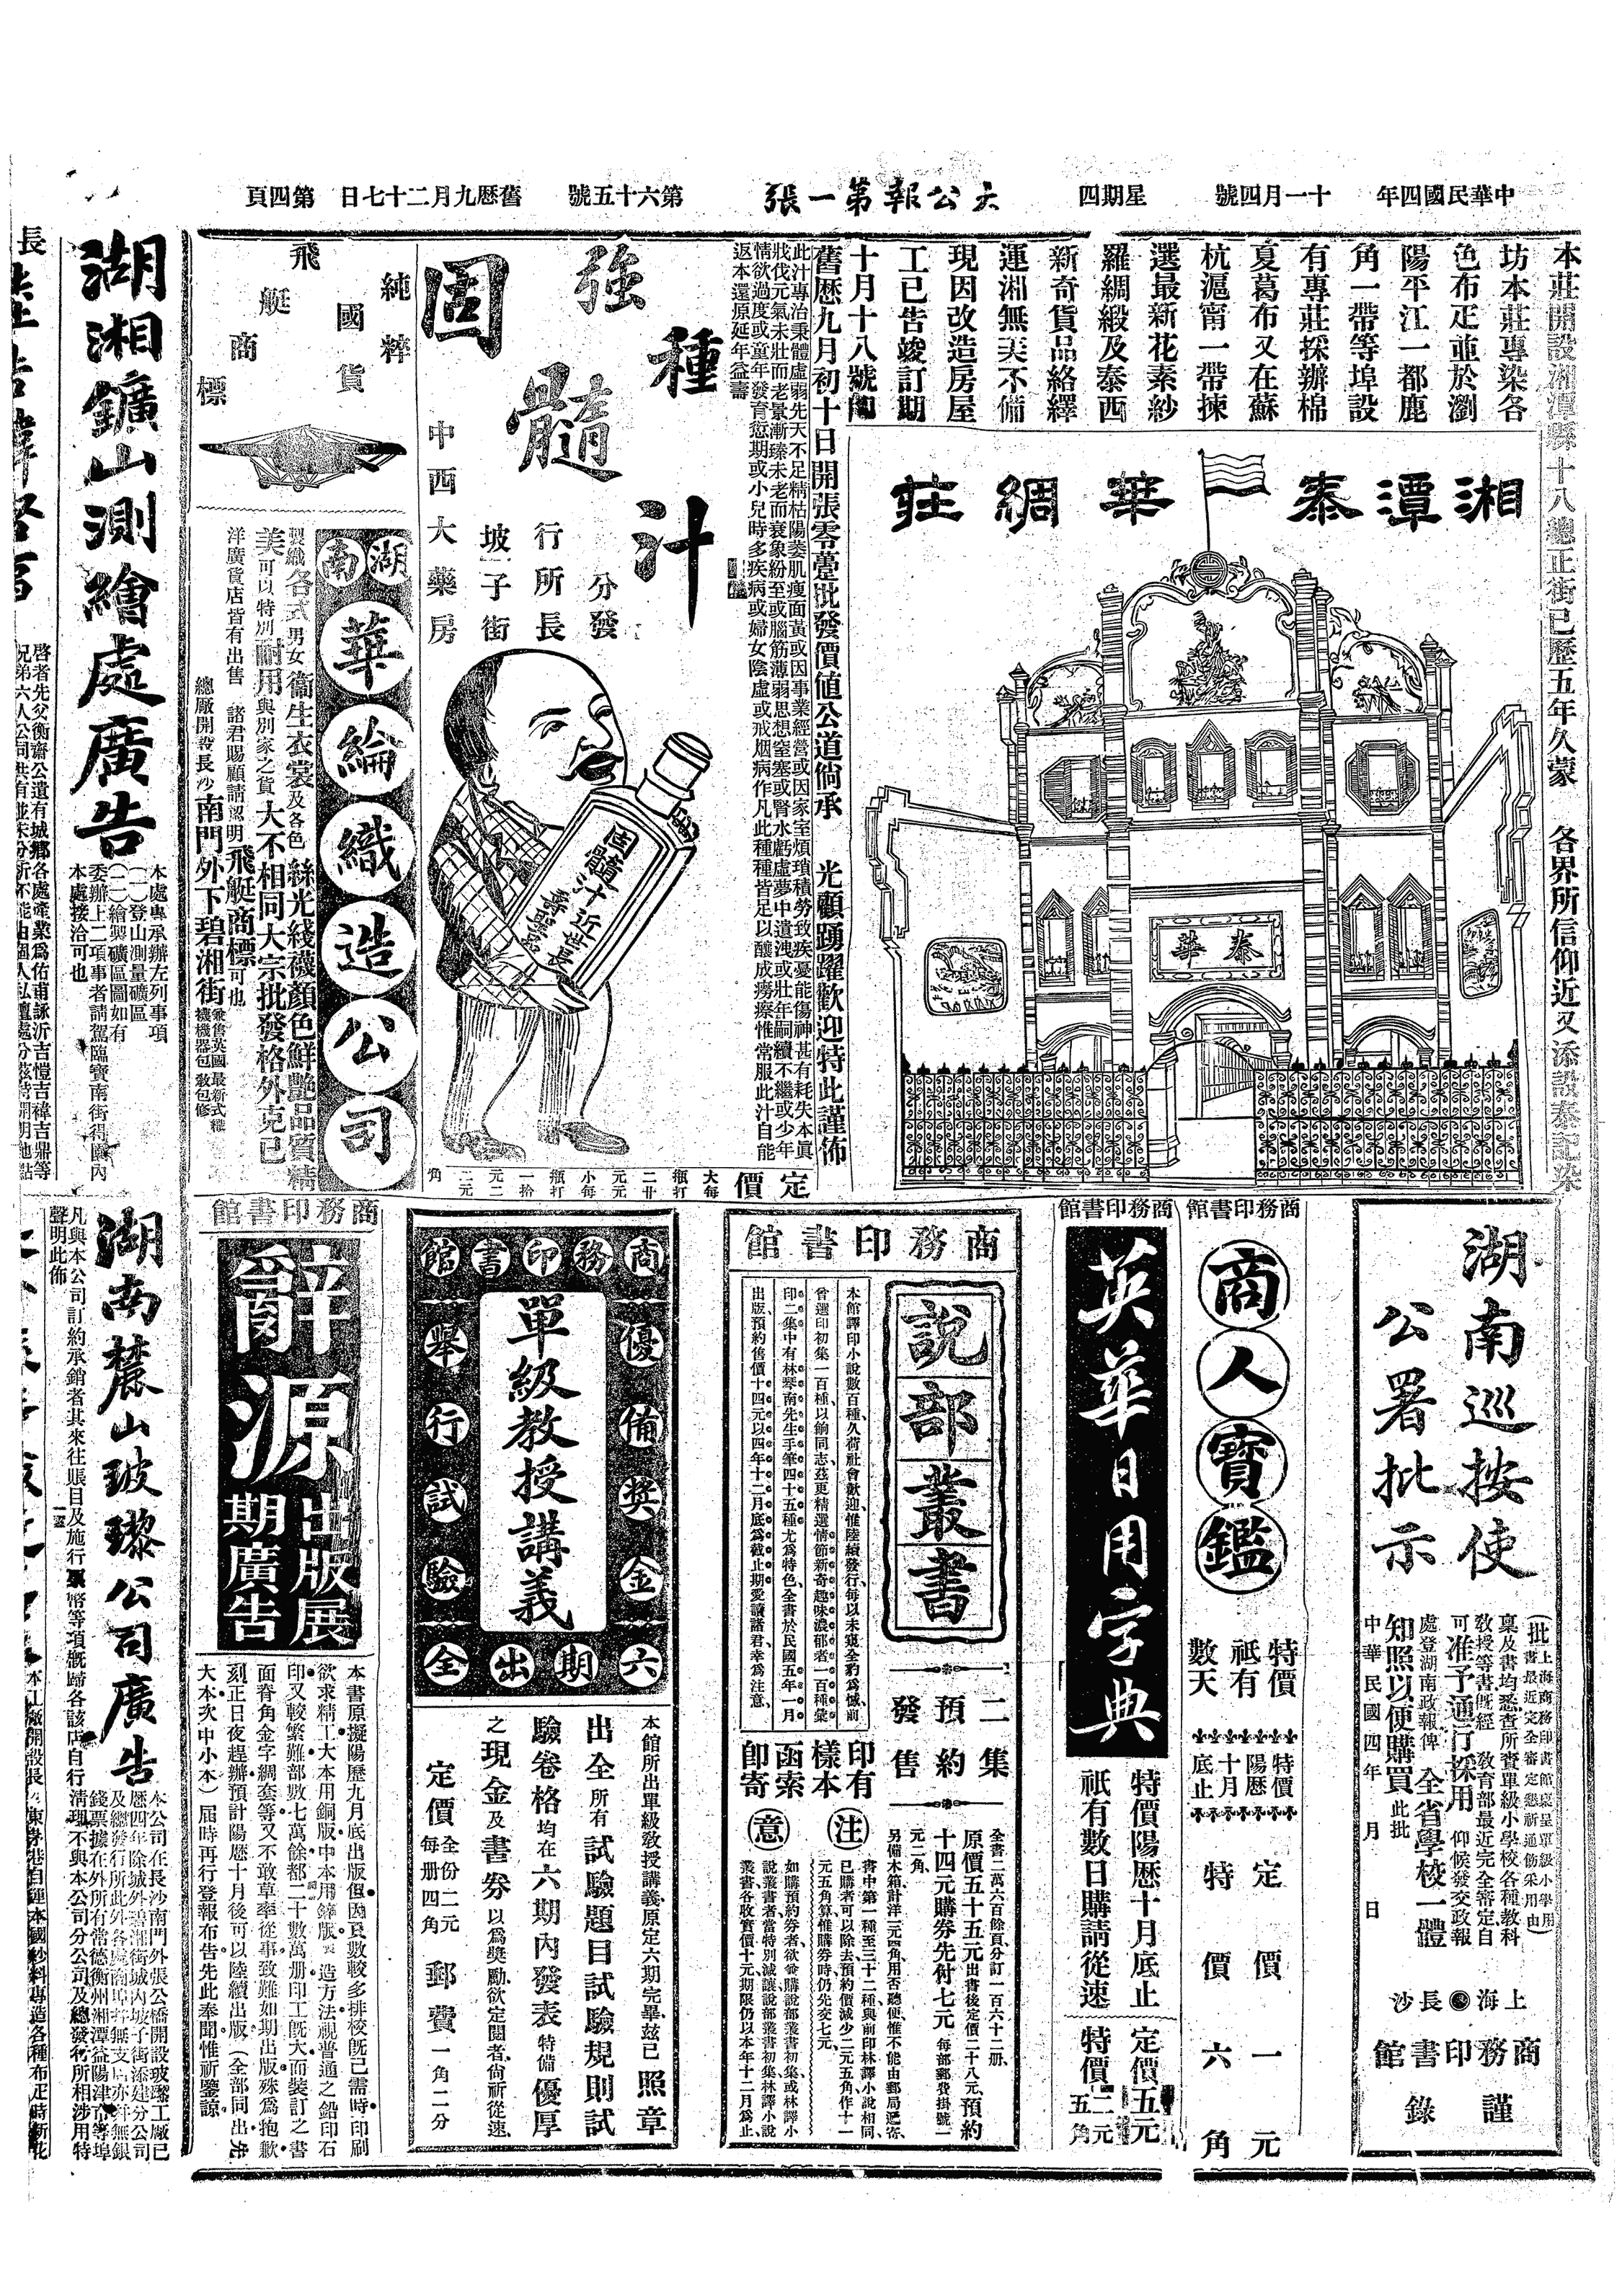 中華民國四年
十一月四號
星期四
大公報第一張
第六十五號
舊歷九月二十七日
第四頁
湘潭泰華綢莊
泰華
本莊開設湘潭縣十八總正街已歷五年久蒙 各界所信仰近又添設泰記染
坊本莊專染各
色布疋並於瀏
陽平江一都鹿
角一帶等埠設
有專莊採辦棉
夏葛布又在蘇
杭滬甯一帶揀
選最新花素紗
羅綢緞及泰西
新奇貨品絡繹
運湘無美不備
現因改造房屋
工已告竣訂期
十月十八號即
舊歷九月初十日開張零躉批發價值公道倘承 光顧踴躍歡迎特此謹佈
強種固髓汁
此汁專治秉體虛弱先天不足精枯陽萎肌瘦面黃或因事業經營或因家室煩瑣積勞致疾憂能傷神甚有耗失本眞
戕伐元氣未壯而老景漸臻未老而衰象紛至或腦筋薄弱思想窒塞或腎水虧虛夢中遺洩或壯年嗣續不繼或少年
情欲過度或童年發育愆期或小兒時多疾病或婦女陰虛或戒烟病作凡此種種皆足以釀成癆瘵惟常服此汁自能
返本還原延年益壽
分發
行所長
坡子街
中西大藥房
固髓汁近世長壽聖品
定價
大每瓶打
二廿元元
小每瓶打
一拾元二
二元角
純粹國貨
飛艇商標
湖南華綸織造公司
製織各式男女衞生衣裳及各色絲光綫襪顏色鮮艷品質精
美可以特別耐用與別家之貨大不相同大宗批發格外克已
洋廣貨店皆有出售 諸君賜顧請認明飛艇商標可也
總廠開設長沙南門外下碧湘街
兼售英國最新式機
襪機器包教包修
湖湘鑛山測繪處廣告
本處專承辦左列事項
（一）登山測量礦區
（二）繪製礦區圖如有
委辦上二項事者請駕臨寶南街得園內
本處接洽可也
啓者先父衡齋公遺有城鄉各處產業爲佑甫詠沂吉愷吉禕吉鼎等
湖南巡按使
公署批示
（批上海商務印書館處呈單級小學用
書最近完全審定懇祈通飭采用由）
稟及書均悉查所賷單級小學校各種教科
教授等書旣經 教育部最近完全審定自
可准予通行採用 仰候發交政報
處登湖南政報俾 全省學校一體
知照以便購買此批
中華民國四年 月 日
上海 長沙
商務印書館
謹錄
商務印書館
商人寶鑑
特價
祇有
數天
特價
陽歷
十月
底止
定價一元
特價六角
商務印書館
英華日用字典
特價陽歷十月底止
祇有數日購請從速
定價五元
特價二元五角
商務印書館
說部叢書
本館譯印小說數百種久荷社會歡迎惟陸續發行每以未窺全豹爲憾前
曾選印初集一百種以餉同志茲更精選情節新奇趣味濃郁者一百種彙
印二集中有林琴南先生手筆四十五種尤爲特色全書於民國五年一月
出版預約售價十四元以四年十二月底爲截止期愛讀諸君幸爲注意
二集
預約
發售
印有
樣本
函索
即寄
全書二萬六百餘頁分訂一百六十二册
原價五十五元出書後定價二十八元預約
十四元購券先付七元每部郵費掛號一
元二角
另備木箱計洋二元四角用否聽便惟不能由郵局遞寄
注意
書中第一種至三十二種與前印林譯小說相同
已購者可以除去預約價減少二元五角作十一
元五角算惟購券時仍先交七元
如購預約券者欲兼購說部叢書初集或林譯小
說叢書者當特別減讓說部叢書初集林譯小說
叢書各收實價十元期限仍以本年十二月爲止
商務印書館
單級教授講義
優備獎金
舉行試驗
六期出全
本館所出單級教授講義原定六期完畢茲已照章
出全所有試驗題目試驗規則試
驗卷格均在六期內發表特備優厚
之現金及書券以爲獎勵欲定閱者尙祈從速
定價
全份二元
每册四角
郵費一角二分
商務印書館
辭源
出版展
期廣告
本書原擬陽歷九月底出版但因頁數較多排校旣已需時印刷
欲求精工大本用銅版中本用鋅版 造方法視普通之鉛印石
印又較繁難部數七萬餘都二十數萬册印工旣大而裝訂之書
面脊角金字綢套等又不敢草率從事致難如期出版殊爲抱歉
刻正日夜趕辦預計陽歷十月後可以陸續出版（全部同出先
大本次中小本）屆時再行登報布告先此奉聞惟祈鑒諒
湖南麓山玻瓈公司廣告
本公司在長沙南門外張公橋開設玻瓈工廠已
歷四年除城外碧湘街城內坡子街添建分公司
及總發行所此外各處商埠 無支店亦 無銀
錢票據在外所有常德衡州湘潭益陽津市等埠
凡與本公司訂約承銷者其來往賬目及施行票幣等項概歸各該店自行清理不與本公司分公司及總發行所相涉用特
聲明此佈